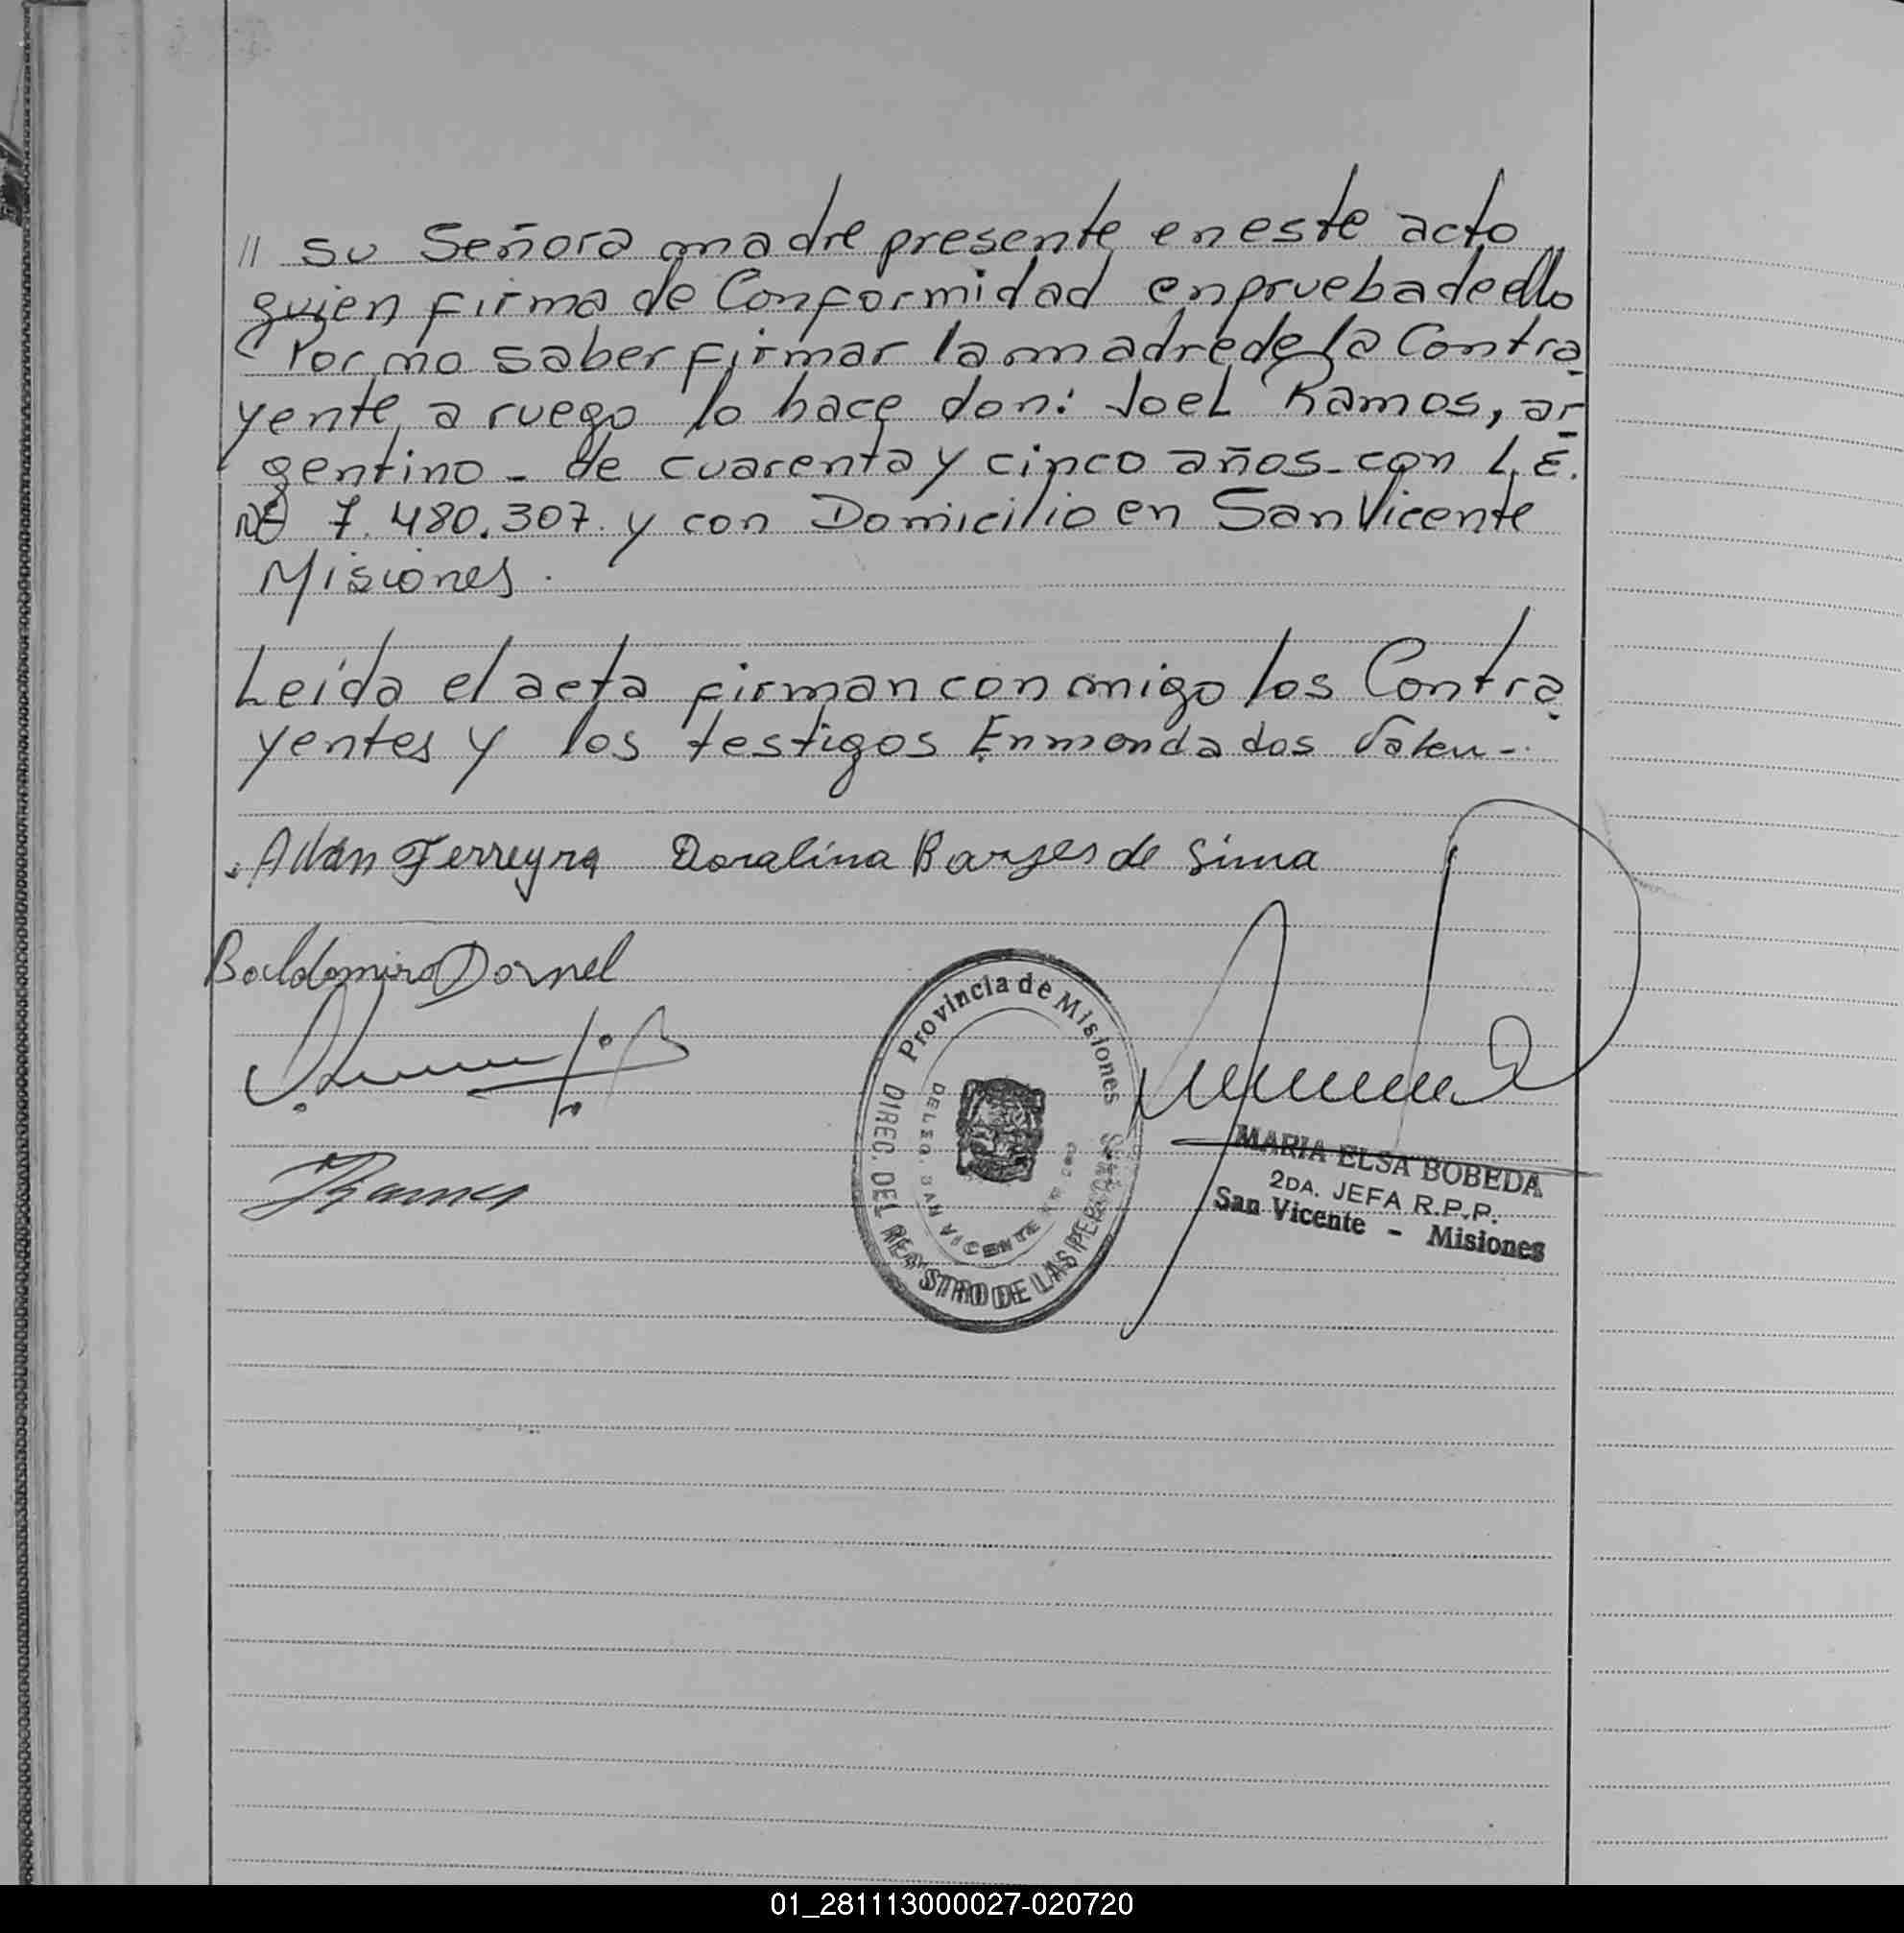 // su Señora madre presente en este acto
quien firma de Conformidad en prueba de ello
Por no saber firmar la madre de la Contra
yente, a ruego lo hace don: Joel Ramos, ar
gentino - de cuarenta y cinco años - con L.E.
Nº 7.480.307. y con Domicilio en San Vicente
Misiones.
Leida el acta firman conmigo los Contra
yentes y los testigos Enmendados Valen -.
Adan Ferreyra Doralina Borges de Lima
Baldomiro Dornel
Provincia de Misiones
DIREC. DEL REGISTRO DE LAS PERSONAS
DELEG. SAN VICENTE
Ramos
MARIA ELSA BOBEDA
2DA. JEFA R.P.P.
San Vicente - Misiones
01_281113000027-020720